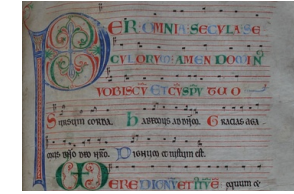 PER OMNIA SECULA SE
CULORUM AMEN DOMIN
VOBISCU ET CU SPU TUO
Sursum corda. habemus ad dnm. Gracias aga
mus dno deo nro. Dignum et iustum est.
VERE DIGNUM equum &